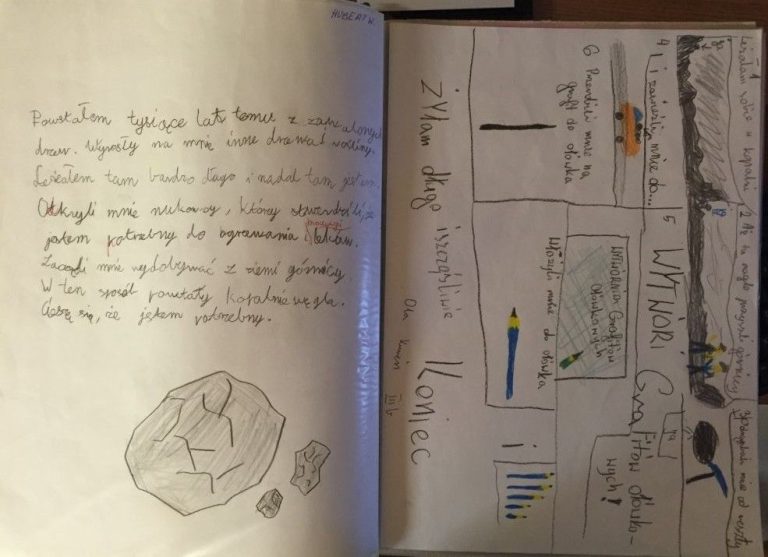 HUBERT W.
Powstałem tysiące lat temu z
drzew. Wyrosły na mnie inne drzewa i rośliny.
Leżałem tam bardzo długo i nadal tam jestem.
Odkryli mnie nukowcy, którzy stwierdzili, że
jestem potrzebny do ogrzewania
Zaczęli mnie wydobywać z ziemi górnicy.
W ten sposób powstały kopalnie węgla.
Cieszę się, że jestem potrzebny.
1
Leżałam sobie w kopalni
ja
2 Aż tu nagle przyszli górnicy
3
mnie od reszty
4 I zawieźli mnie do...
5
WYTWÓRI Grafitów ołówko-
wych!
6 Przerobili mnie na
grafit do ołówka
WYTWÓRNIA Grafitów
Ołówkowych
Włożyli mnie do ołówka
i
żyłam długo i szczęśliwie
Koniec
Ola
III b